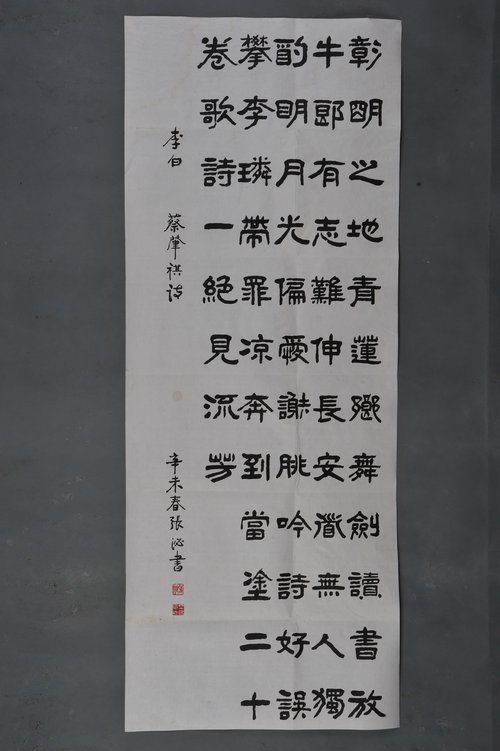 彰明之地青蓮鄉舞劍讀書放
牛郎有志難伸長安道無人獨
酌明月光偏愛謝朓吟詩好誤
攀李璘帶罪凉奔到當塗二十
卷歌詩一絕見流芳
李白 蔡肇祺詩 辛未春張泌書